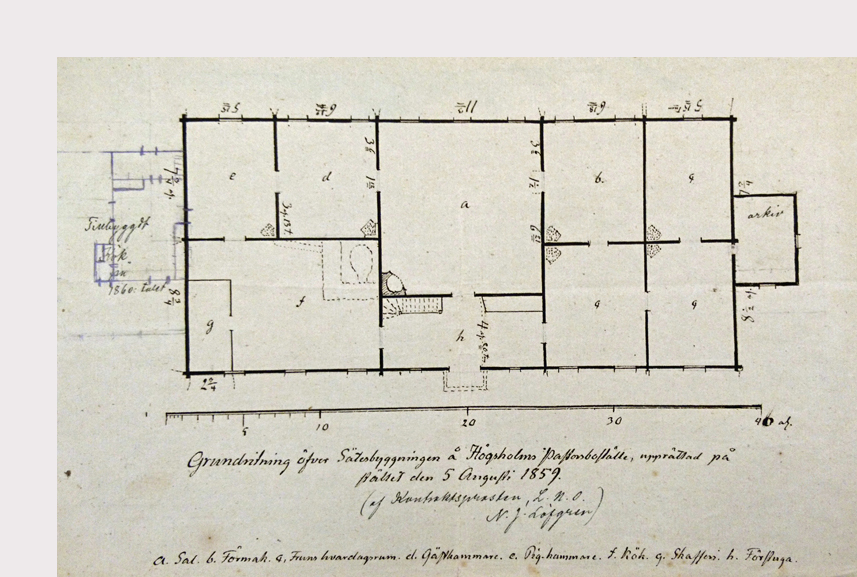 a
b.
q
e
d.
q
q
f
g
h
arkiv
Tillbyggdt
Kök.
1860: talet
5 10 20 30 40 al.
Grundritning öfver Sätesbyggningen å Högsholms Pastorsboställe, upprättad på
stället den 5 Augusti 1859.
(af Kontraktsprosten, L. N. O.
N. J. Löfgren)
a. Sal. b. Förmak. q, Fruns hvardagsrum. d. Gästkammare. e. Pig-kammare. f. Kök. g. Skafferi. h. Förstuga.